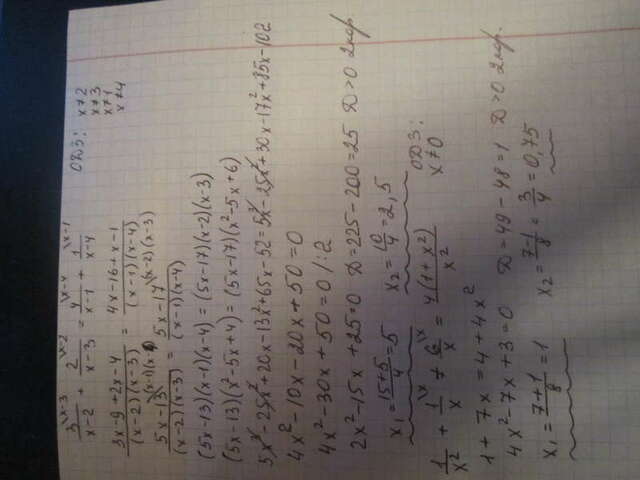 3\x-3/(x-2) + 2\x-2/(x-3) = 4\x-4/(x-1) + 1\x-1/(x-4) ОДЗ: x≠2
x≠3
x≠1
x≠4
(3x-9+2x-4)/((x-2)(x-3)) = (4x-16+x-1)/((x-1)(x-4))
5x-13\(x-1)(x-4)/((x-2)(x-3)) = 5x-17\(x-2)(x-3)/((x-1)(x-4))
(5x-13)(x-1)(x-4) = (5x-17)(x-2)(x-3)
(5x-13)(x²-5x+4) = (5x-17)(x²-5x+6)
5x³-25x²+20x-13x²+65x-52=5x³-25x²+30x-17x²+85x-102
4x²-10x-20x+50=0
4x²-30x+50=0 /:2
2x²-15x+25=0 D=225-200=25 D>0 2кор.
x₁=(15+5)/4=5 x₂=10/4=2,5
1/x² + 1\x/x + 6\x/x = 4(1+x²)/x² ОДЗ:
x≠0
1+7x=4+4x²
4x²-7x+3=0 D=49-48=1 D>0 2кор.
x₁=(7+1)/8=1 x₂=(7-1)/8=3/4=0,75